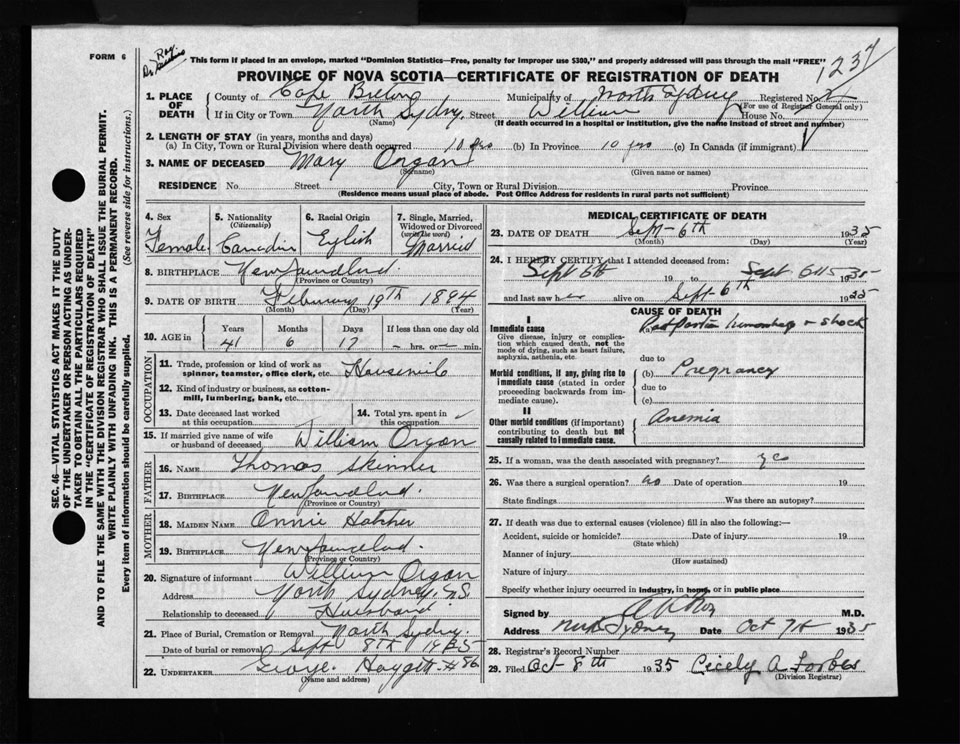 FORM 6
This form if placed in an envelope, marked "Dominion Statistics—Free, penalty for improper use $300," and properly addressed will pass through the mail "FREE"
PROVINCE OF NOVA SCOTIA—CERTIFICATE OF REGISTRATION OF DEATH
1237
1. PLACE OF DEATH
County of Cape Breton Municipality of North Sydney Registered No.
(For use of Registrar General only)
If in City or Town North Sydney Street William House No.
(Name) (If death occurred in a hospital or institution, give the name instead of street and number)
2. LENGTH OF STAY (in years, months and days)
(a) In City, Town or Rural Division where death occurred 10 yrs (b) In Province 10 yrs (c) In Canada (if immigrant)
3. NAME OF DECEASED Mary Organ
(Surname) (Given name or names)
RESIDENCE No. Street City, Town or Rural Division Province
(Residence means usual place of abode. Post Office Address for residents in rural parts not sufficient)
SEC. 46—VITAL STATISTICS ACT MAKES IT THE DUTY
OF THE UNDERTAKER OR PERSON ACTING AS UNDER-
TAKER TO OBTAIN ALL THE PARTICULARS REQUIRED
IN THE "CERTIFICATE OF REGISTRATION OF DEATH"
AND TO FILE THE SAME WITH THE DIVISION REGISTRAR WHO SHALL ISSUE THE BURIAL PERMIT.
WRITE PLAINLY WITH UNFADING INK. THIS IS A PERMANENT RECORD.
Every item of information should be carefully supplied. (See reverse side for instructions.)
4. Sex
Female
5. Nationality
(Citizenship)
Canadin
6. Racial Origin
English
7. Single, Married, Widowed or Divorced
(write the word)
Married
8. BIRTHPLACE Newfoundland.
(Province or Country)
9. DATE OF BIRTH February 19th 1894
(Month) (Day) (Year)
10. AGE in
Years Months Days If less than one day old
41 6 17 — hrs. or — min.
OCCUPATION
11. Trade, profession or kind of work as
spinner, teamster, office clerk, etc. Housewife
12. Kind of industry or business, as cotton-
mill, lumbering, bank, etc.
13. Date deceased last worked
at this occupation
14. Total yrs. spent in
this occupation
15. If married give name of wife
or husband of deceased William Organ
FATHER
16. NAME Thomas Skinner
17. BIRTHPLACE Newfoundland.
(Province or Country)
MOTHER
18. MAIDEN NAME Annie Hatcher
19. BIRTHPLACE Newfoundland.
(Province or Country)
20. Signature of informant William Organ
Address North Sydney. N.S.
Relationship to deceased Husband
21. Place of Burial, Cremation or Removal North Sydney.
Date of burial or removal Sept 8th 1935
22. UNDERTAKER George #86
(Name and address)
MEDICAL CERTIFICATE OF DEATH
23. DATE OF DEATH Sept— 6th 1935
(Month) (Day) (Year)
24. I HEREBY CERTIFY that I attended deceased from:
Sept 6th 19 to Sept 6th 1935
and last saw her alive on Sept 6th 1935
CAUSE OF DEATH
I
Immediate cause
Give disease, injury or complica-
tion which caused death, not the
mode of dying, such as heart failure,
asphyxia, asthenia, etc.
(a) Post Partum hemorrhage & shock
due to
Morbid conditions, if any, giving rise to
immediate cause (stated in order
proceeding backwards from im-
mediate cause).
(b) Pregnancy
due to
(c)
II
Other morbid conditions (if important)
contributing to death but not
causally related to immediate cause.
Anemia
25. If a woman, was the death associated with pregnancy? yes
26. Was there a surgical operation? no Date of operation 19
State findings Was there an autopsy?
27. If death was due to external causes (violence) fill in also the following:—
Accident, suicide or homicide? Date of injury 19
(State which)
Manner of injury
(How sustained)
Nature of injury
Specify whether injury occurred in industry, in home, or in public place
Signed by M.D.
Address North Sydney Date Oct 7th 1935
28. Registrar's Record Number
29. Filed Oct— 8th 1935 Cicely A Forbes
(Division Registrar)